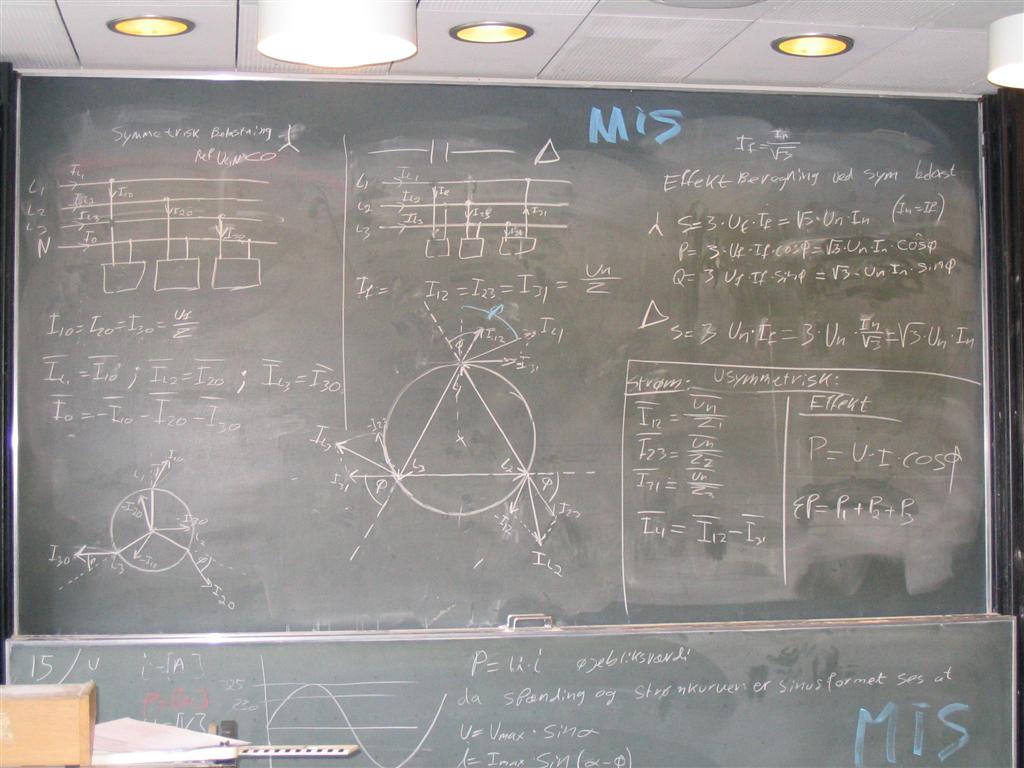 Symmetrisk Belastning
L1
L2
L3
N
IL1
IL2
IL3
I0
I10
I20
I30
I10 = I20 = I30 = Uf/Z
IL1 = I10 ; IL2 = I20 ; IL3 = I30
I0 = -I10 - I20 - I30
I10
L1
-I20
-I30
-I10
I30
φ
L3
L2
φ
I20
Δ
L1
L2
L3
IL1
IL2
IL3
I31
If = I12 = I23 = I31 = Un/Z
φ
φ
I12
IL1
I31
L1
IL3
I31
φ
L3
L2
φ
I23
IL2
MiS
If = In/√3
Effekt Beregning ved sym belast
S = 3 · Uf · If = √3 · Un · In (In = If)
P = 3 · Uf · If · cosφ = √3 · Un · In · cosφ
Q = 3 Uf · If · sinφ = √3 · Un In · sinφ
Δ
S = 3 Un · If = 3 · Un · In/√3 = √3 · Un · In
Strøm: Usymmetrisk:
I12 = Un/Z1
I23 = Un/Z2
I31 = Un/Z3
IL1 = I12 - I31
Effekt
P = U · I · cosφ
ΣP = P1 + P2 + P3
15 / U
i - [A]
325
220
P = u · i øjebliksværdi
da spænding og strømkurven er sinusformet ses at
U = Umax · sinα
i = Imax sin(α-φ)
MiS